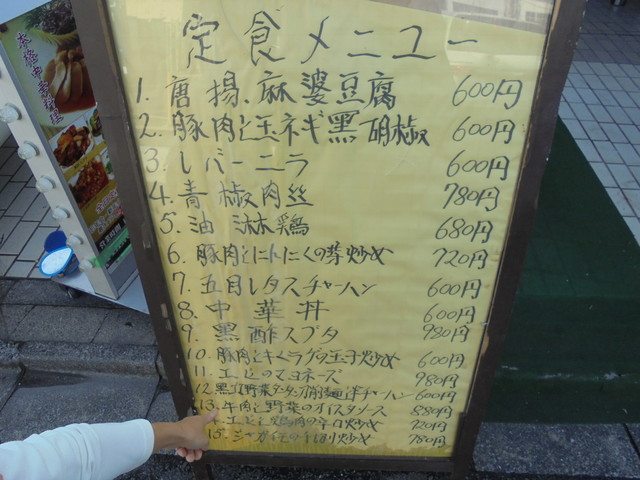 本格中華料理
定食メニュー
1. 唐揚.麻婆豆腐 600円
2. 豚肉と玉ネギ黒胡椒 600円
3. レバーニラ 600円
4. 青椒肉丝 780円
5. 油淋鶏 680円
6. 豚肉とにんにくの芽炒め 720円
7. 五目レタスチャーハン 600円
8. 中華丼 600円
9. 黒酢スブタ 980円
10. 豚肉とキクラゲの玉子炒め 600円
11. エビのマヨネーズ 980円
12. 野菜 刀削麺 半チャーハン 600円
13. 牛肉と野菜のオイスタソース 880円
エビと鶏肉の辛口炒め 720円
15. ジャガイモの千切り炒め 780円